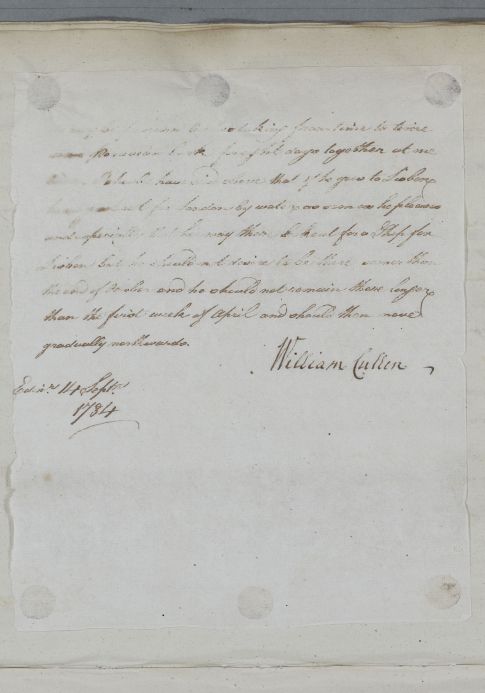 taking from time to time
days together at one
that if he goes to Lisbon
he may set out for London by water as soon as he pleases
and especially that he may there look out for a Ship for
Lisbon but he should not desire to be there sooner than
the end of October and he should not remain there longer
than the first week of April and should then move
gradually northwards.
William Cullen
Edinr. 14 Septr.
1784